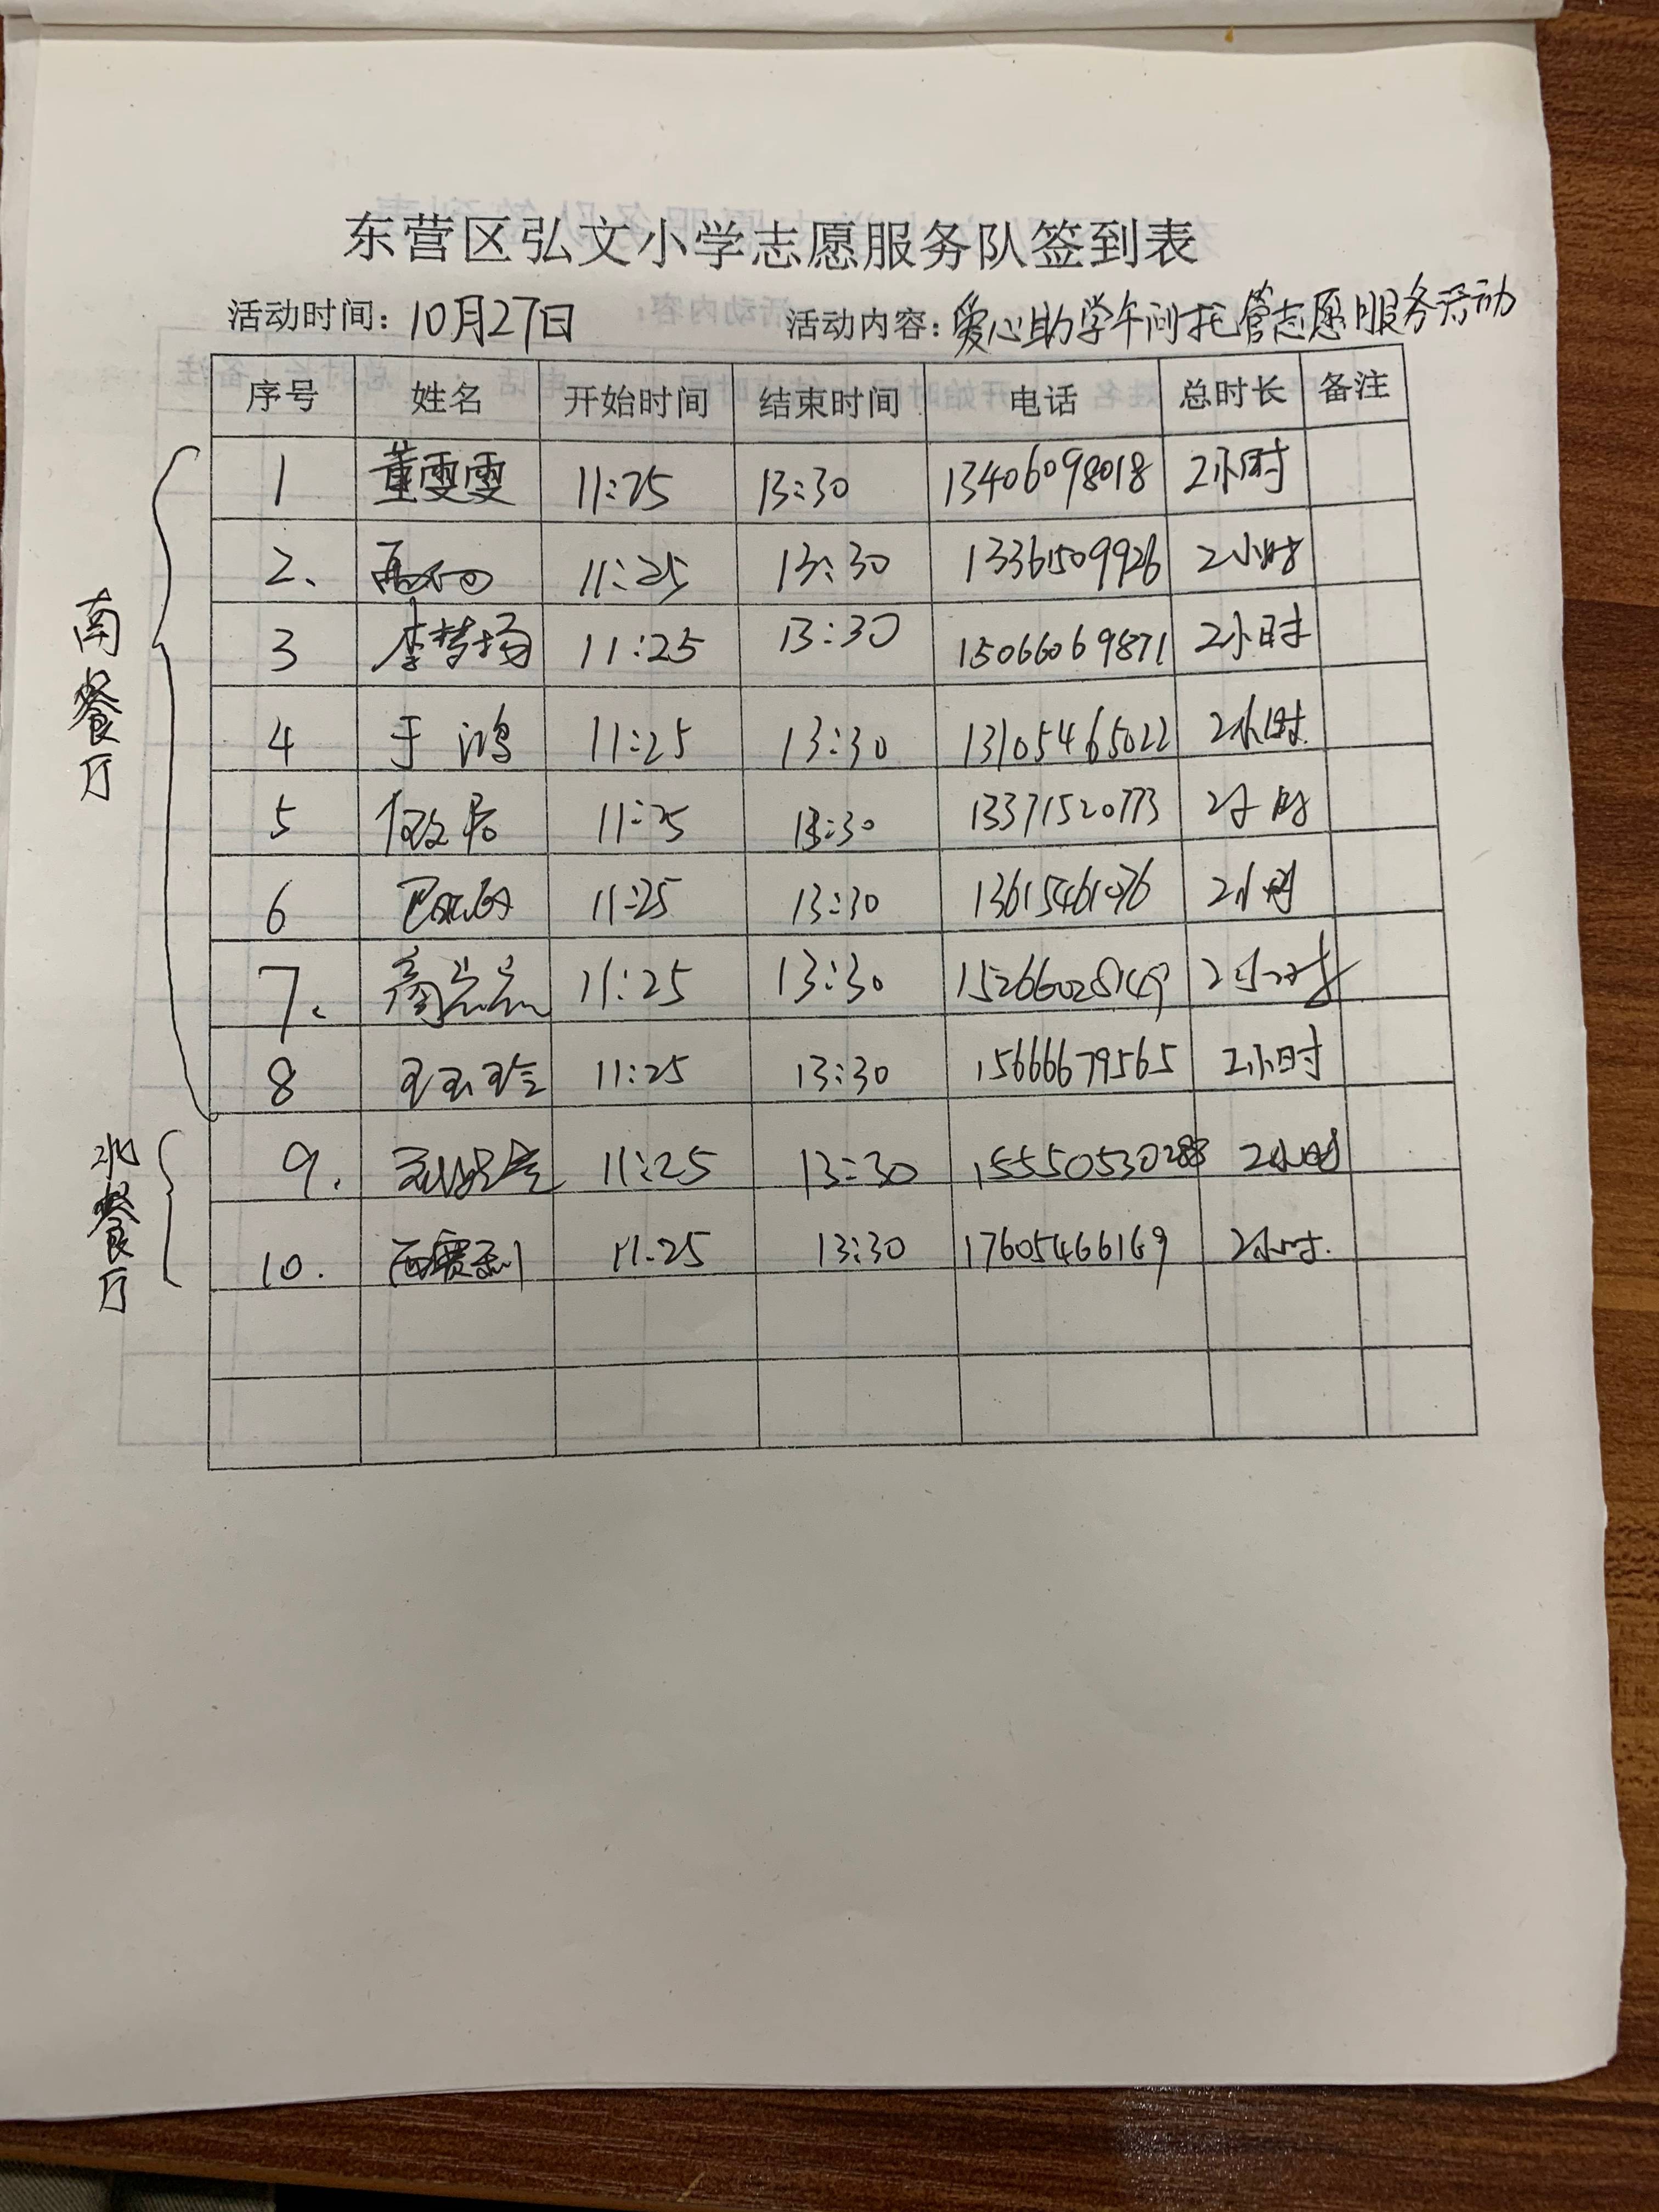 东营区弘文小学志愿服务队签到表
活动时间：10月27日 活动内容：爱心助学午间托管志愿服务活动
序号 姓名 开始时间 结束时间 电话 总时长 备注
南餐厅
1 董雯雯 11:25 13:30 13406098018 2小时
2、 11:25 13:30 13361509926 2小时
3 李梦扬 11:25 13:30 15066069871 2小时
4 于鸿 11:25 13:30 13105465022 2小时
5 11:25 13:30 13371520773 2小时
6 11:25 13:30 2小时
7. 11:25 13:30 15266028149 2小时
8 11:25 13:30 15666679565 2小时
北餐厅
9. 11:25 13:30 2小时
10. 11:25 13:30 17605466169 2小时.